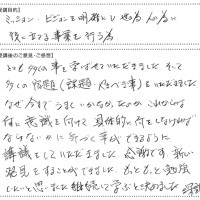 受講目的】
ミッション・ビジョンを明確にし世のため人のため
役に立てる事業を行う為
受講後のご意見・ご感想】
とても多くの事を学ばせていただきました。そして
多くの宿題(課題・やるべき事)をいただきました
なぜ今までうまくいかなかったのか これからは
何に意識を向けて具体的に何をしなければ
ならないかに気づく事ができるように
講義をしていただきました。感謝です。新しい
発見をすることができました。もっともっと勉強
したいと思いました。継続して学ぶと決めました。